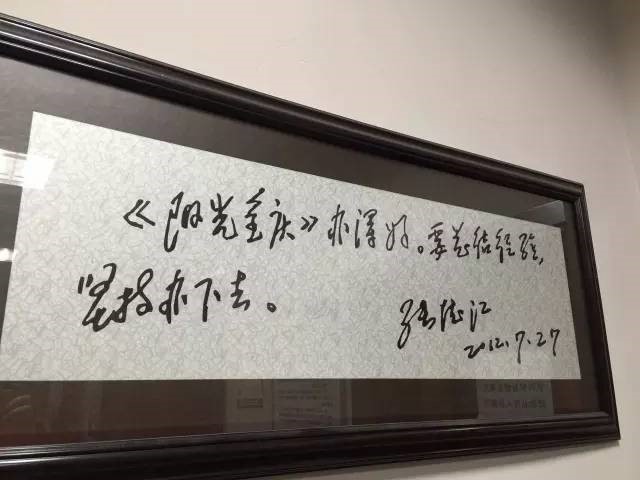 《阳光重庆》办得好。要总结经验,
坚持办下去。
张德江
2012.7.27